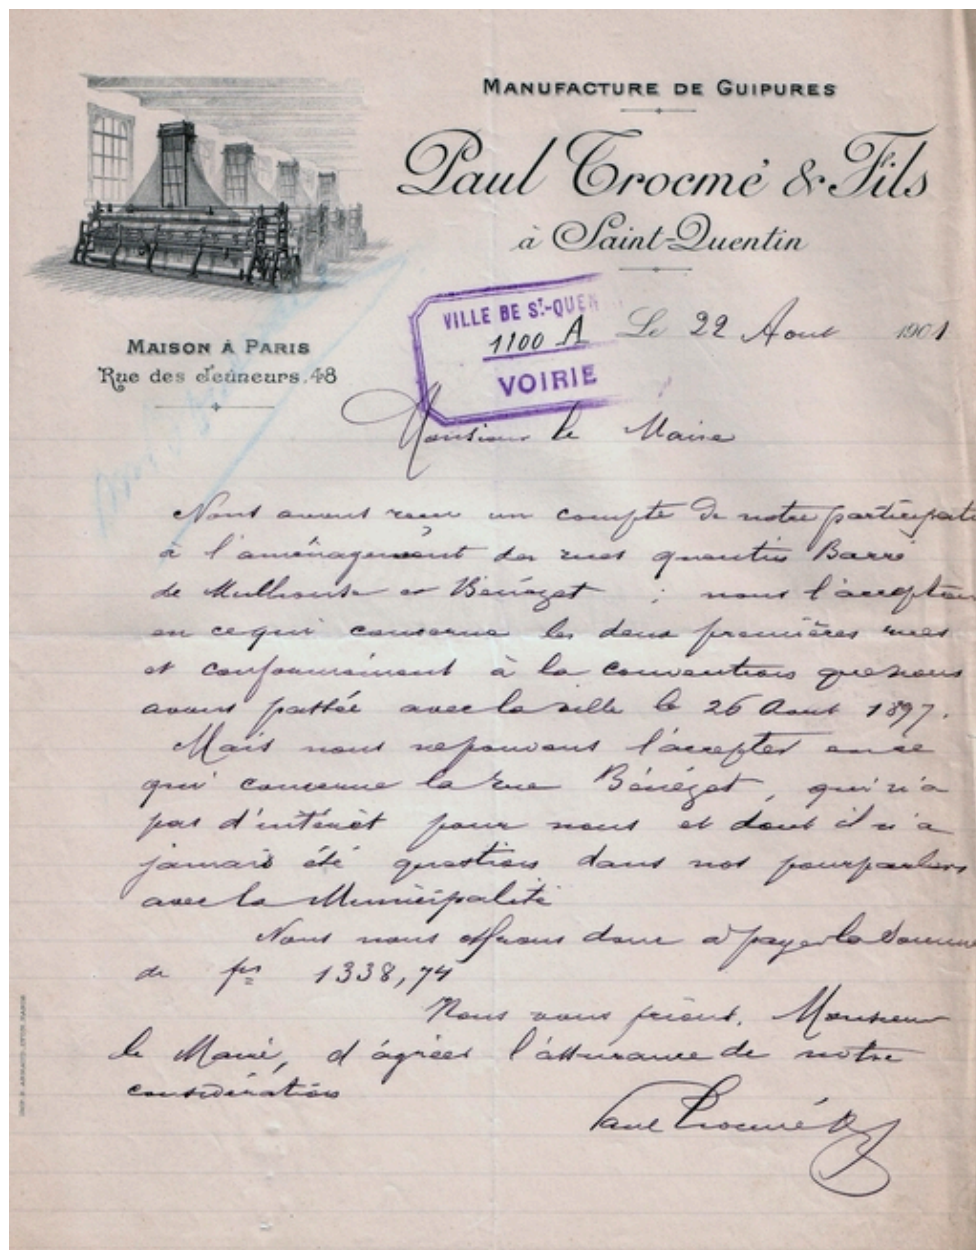 MANUFACTURE DE GUIPURES
Paul Trocmé & Fils
à Saint-Quentin
MAISON À PARIS
Rue des Jeûneurs, 48
VILLE DE St-QUEN
1100 A
VOIRIE
Le 22 Aout 1901
Monsieur le Maire
Nous avons recu un compte de notre participati
à l'aménagement des rues quentin Barré
de Mulhouse et Bénézet ; nous l'accepton
en cequi concerne les deux premières rues
et conformément à la convention quenous
avons passée avec la ville le 26 Aout 1897.
Mais nous nepouvons l'accepter ence
qui concerne la rue Bénézet, qui n'a
pas d'intérêt pour nous et dont il n'a
jamais été question dans nos pourparlers
avec la Municipalité
Nous nous offrons donc à payer la somme
de frs 1338,74
Nous vous prions, Monsieur
le Maire, d'agréer l'assurance de notre
considération
Paul Trocmé